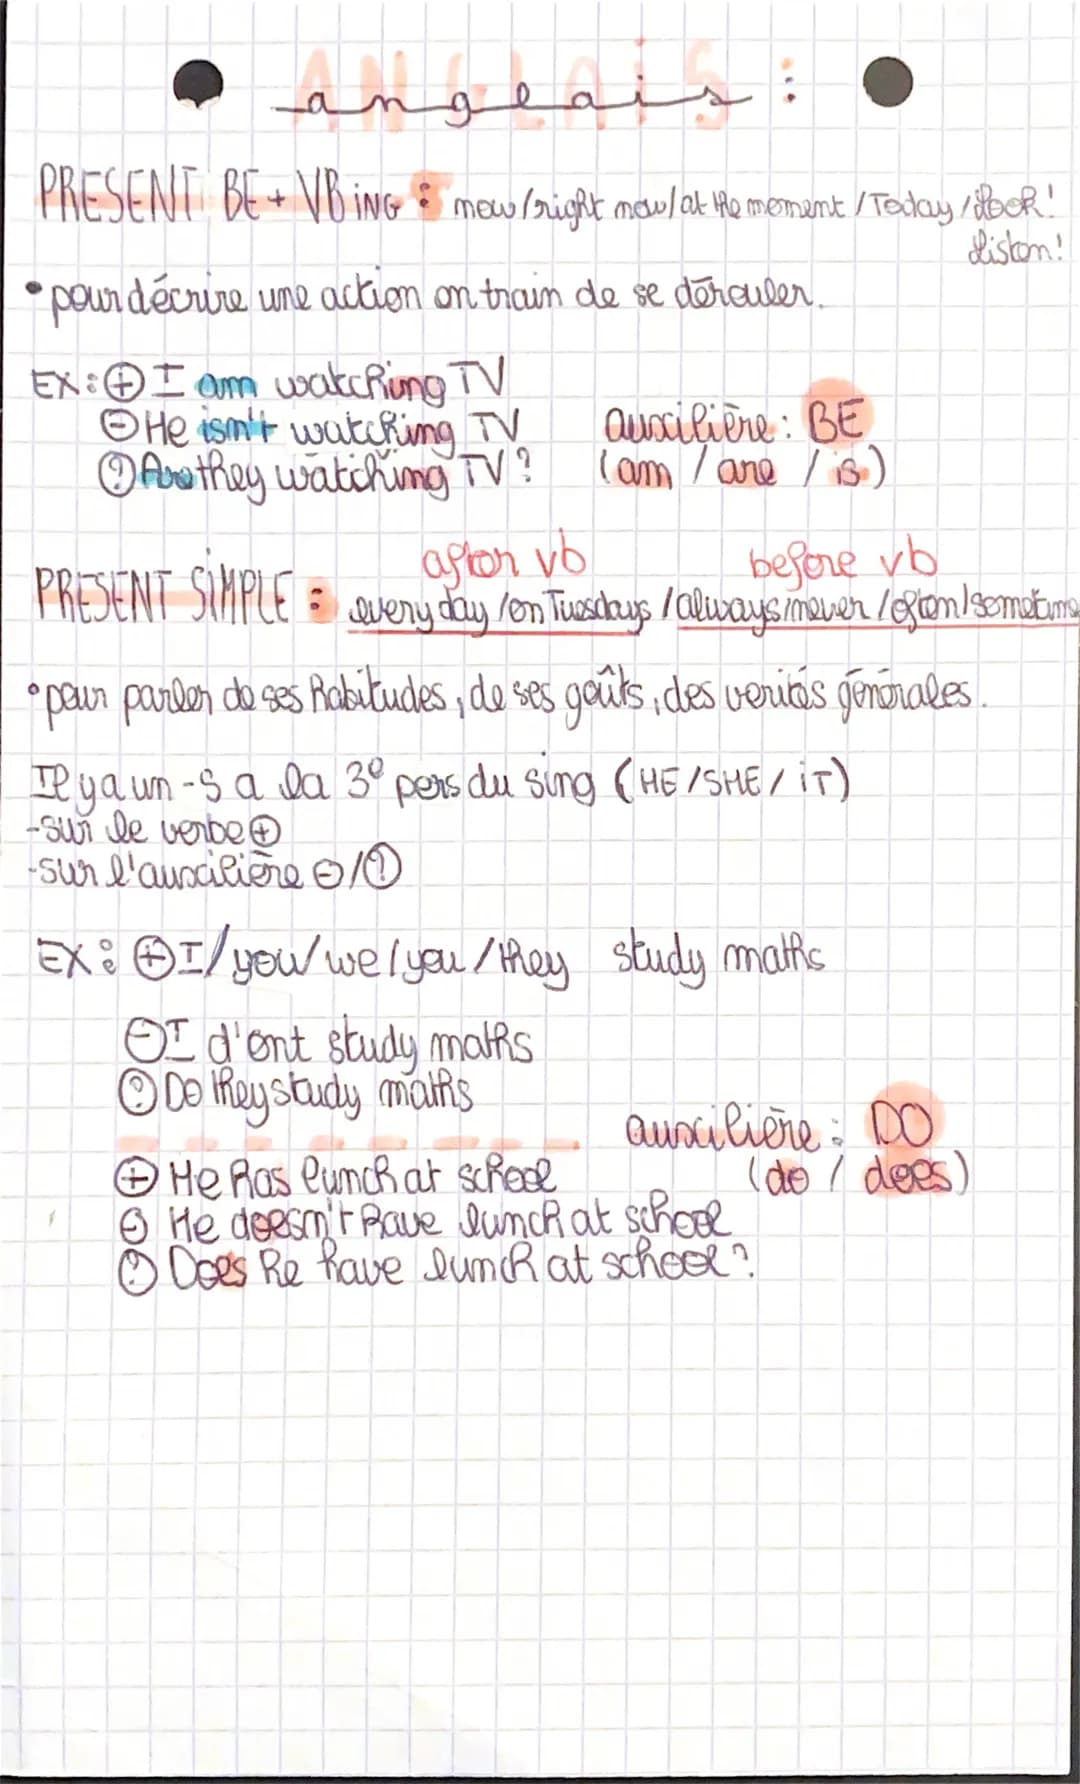 ANGLAIS :
anglais
PRESENT BE + VB ING : now / right now / at the moment / Today / Look!
Listen!
• pour décrire une action en train de se dérouler.
EX : + I am watching TV
- He isn't watching TV auxilière : BE
? Are they watching TV ? (am / are / is)
after vb before vb
PRESENT SIMPLE : every day / on Tuesdays / always / never / often / sometime
• pour parler de ses habitudes, de ses goûts, des verités générales.
Il y a un -s a la 3e pers du sing (HE / SHE / iT)
- sur le verbe +
- sur l'auxilière - / ?
EX : + I / you / we / you / they study maths
- I d'ont study maths
? Do they study maths
auxilière : DO
+ He has lunch at school (do / does)
- He doesn't have lunch at school
? Does he have lunch at school ?